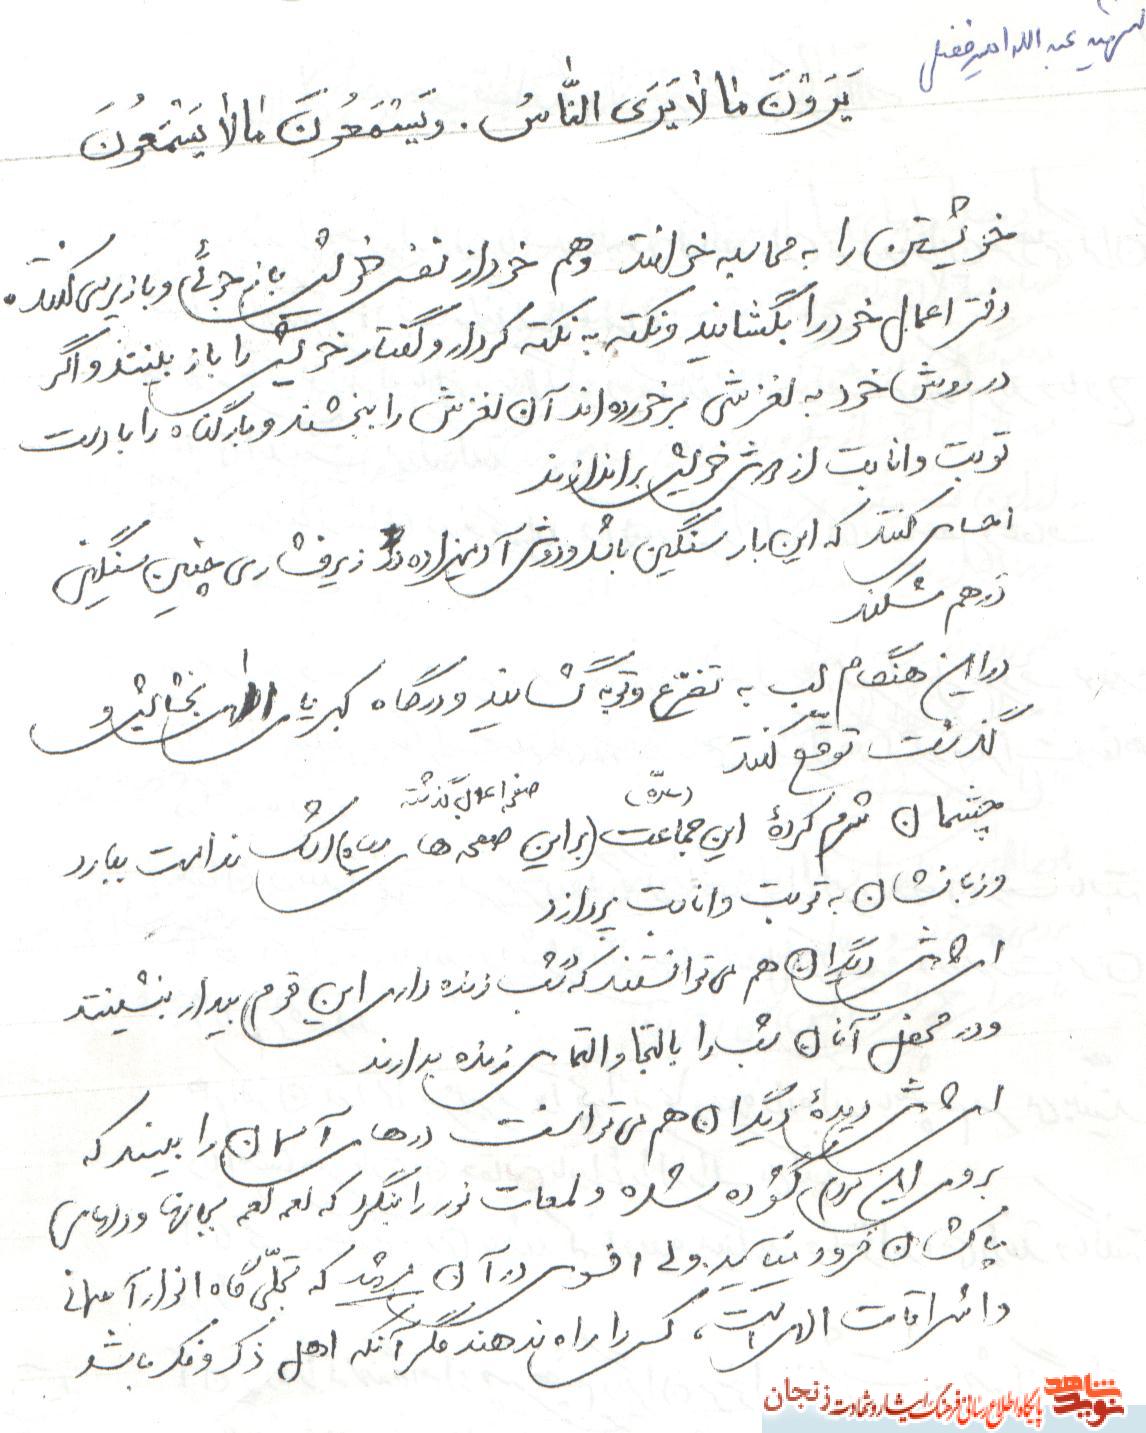 شهید عبدالله امیرفضلی
یَرَوْنَ ما لا یَرَی النّاسُ . وَیَسْتَمِعُونَ ما لا یَسْتَمِعُونَ
خویشتن را به محاسبه خوانند وهم خود از نفس خویش بازجوئی و بازپرسی کنند.
دفتر اعمال خود را بگشایند و نکته به نکته کردار و گفتار خویش را باز بینند و اگر
در روش خود به لغزشی برخورده اند آن لغزش را ببخشند و بار گناه را با دست
توبت وانابت از دوش خویش براندازند
احساس کنند که این بار سنگین باشد و دوش آدمیزاده زیر فشاری چنین سنگین
درهم شکند
در این هنگام لب به تضرّع و توبه گشایند و درگاه کبریای الهی بخشایش و
گذشت توقّع کنند
صفحه اعمال گذشته
چشمان شرم کردهٔ این جماعت (براین صفحه های سیاه) اشک ندامت ببارد
و زبانشان به توبت وانابت پردازد
ای کاش دیگران هم می توانستند که شب زنده داری این قوم بیدار بنشینند
ودر محفل آنان شب را با التجا و التماس زنده بدارند
ای کاش دیدهٔ دیگران هم می توانست درهای آسمان را ببیند که
بروی این مردم گشوده شده و لمعات نور را بنگرد که لمعه لمعه بجانها و دلهای
پاکشان فرود میآید ولی افسوس در آن که تجلّی گاه انوار آسمانی
و اشراقات الهی است، کسی را راه ندهند مگر آنکه اهل ذکر و فکر باشد
نوید شاهد
پایگاه اطلاع رسانی فرهنگ ایثار و شهادت زنجان